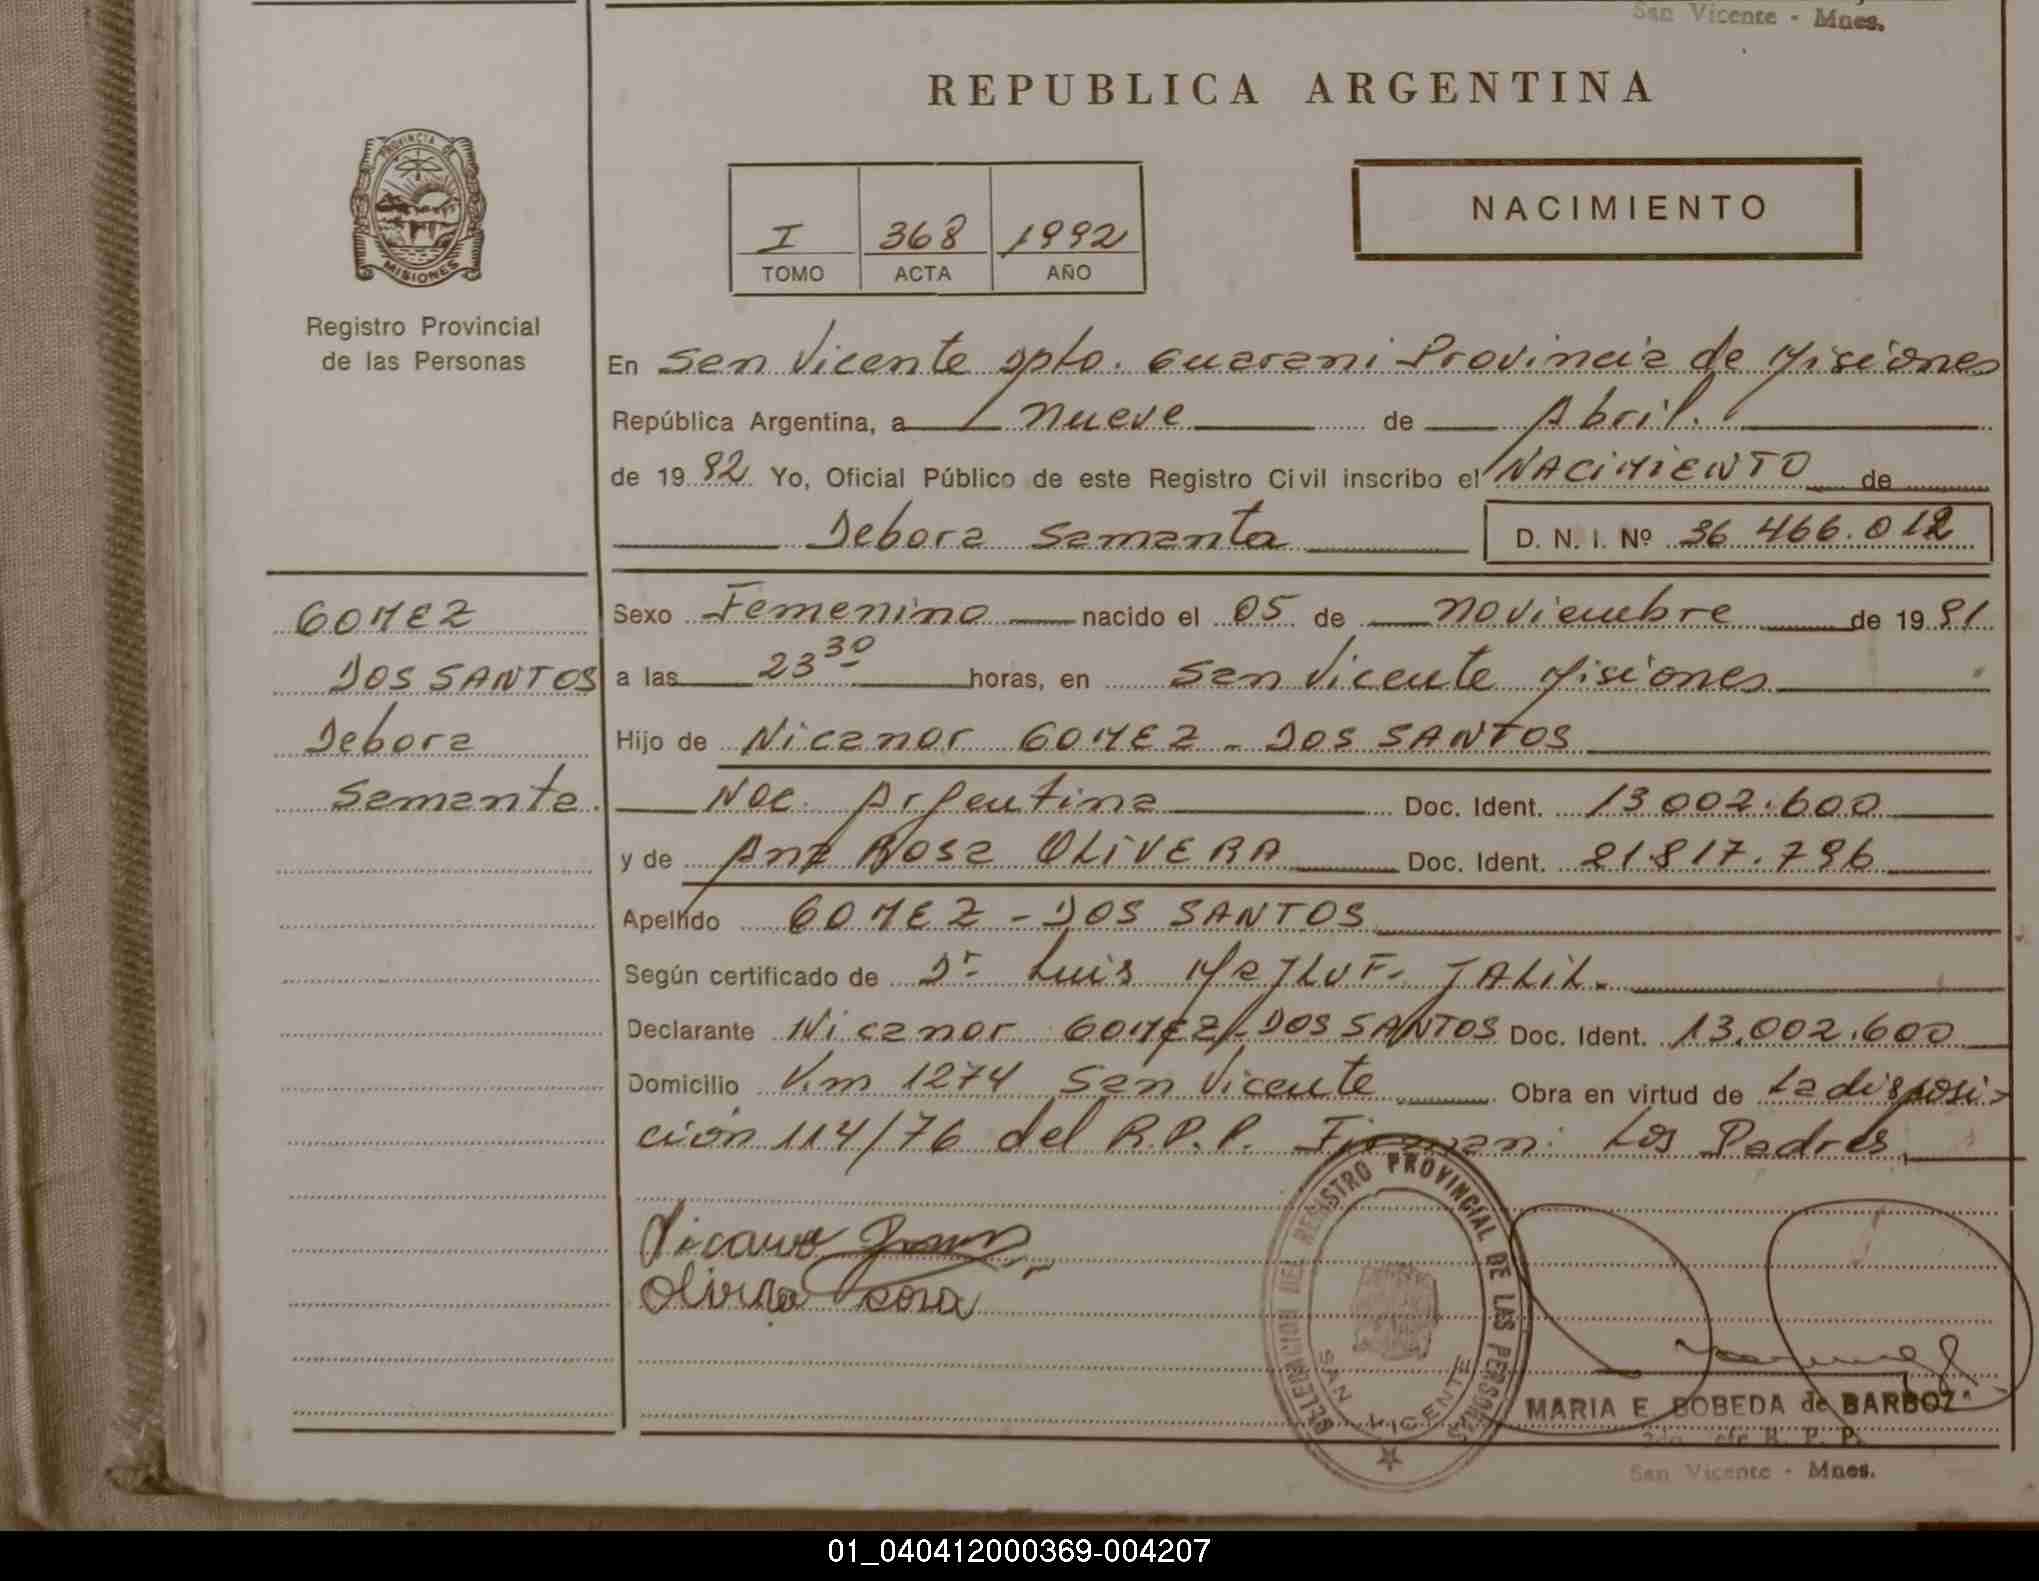 San Vicente - Mnes.
REPUBLICA ARGENTINA
PROVINCIA DE
MISIONES
Registro Provincial
de las Personas
I 368 1992
TOMO ACTA AÑO
NACIMIENTO
En San Vicente Dpto. Guarani Provincia de Misiones
República Argentina, a nueve de Abril.
de 19 92 Yo, Oficial Público de este Registro Civil inscribo el NACIMIENTO de
Debora Samanta D. N. I. Nº 36 466.012
GOMEZ
DOS SANTOS
Debora
Samanta.
Sexo Femenino nacido el 05 de Noviembre de 19 91
a las 23 30 horas, en San Vicente Misiones
Hijo de Nicanor GOMEZ - DOS SANTOS
Nac. Argentina Doc. Ident. 13 002.600
y de Ana Rosa OLIVERA Doc. Ident. 21.817.796
Apellido GOMEZ - DOS SANTOS
Según certificado de Dr. Luis JALIL.
Declarante Nicanor GOMEZ - DOS SANTOS Doc. Ident. 13.002.600
Domicilio Km 1274 San Vicente Obra en virtud de La disposi-
ción 114/76 del R.P.P. Firman: Los Padres
Olivera Rosa
DELEGACION DEL REGISTRO PROVINCIAL DE LAS PERSONAS
SAN VICENTE
MARIA E. BOBEDA de BARBOZA
R. P. P.
San Vicente - Mnes.
01_040412000369-004207